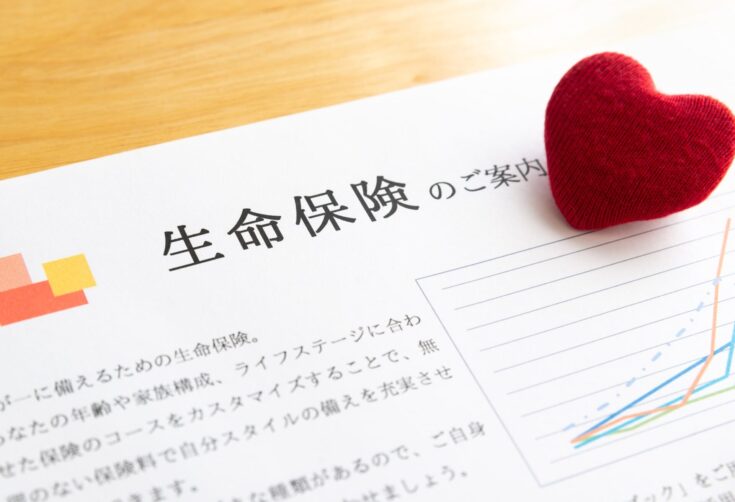 生命保険のご案内
が一に備えるための生命保険。
なたの年齢や家族構成、ライフステージに合わ
せた保険のコースをカスタマイズすることで、無
理のない保険料で自分スタイルの備えを充実させ
きます。
な種類があるので、ご自身
わせましょう。